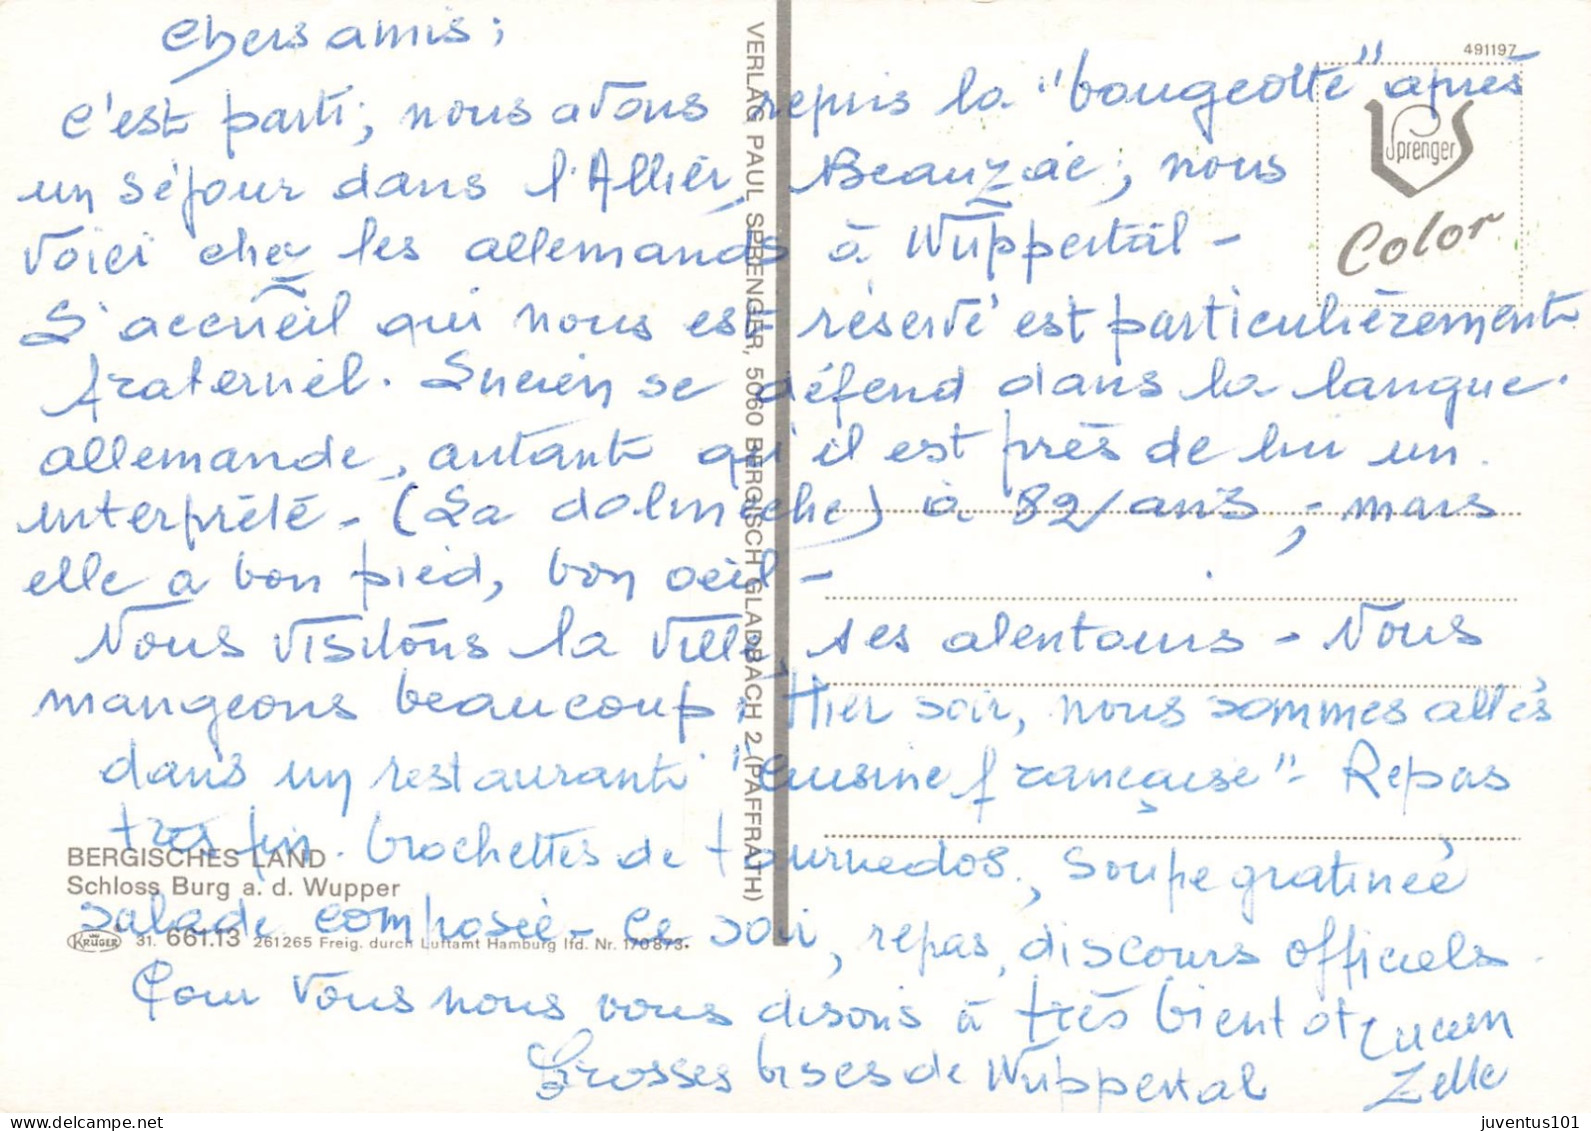 Chers amis ;
c'est parti, nous avons repris la "bougeotte" après
un séjour dans l'Allier, Beauzac ; nous
voici chez les allemands à Wuppertal -
L'accueil qui nous est réservé est particulièrement
fraternel. Lucien se défend dans la langue
allemande, autant qu'il est près de lui un
interprète - (La dolmeche) à 82 ans ; mais
elle a bon pied, bon oeil -
Nous visitons la ville, ses alentours - Nous
mangeons beaucoup. Hier soir, nous sommes allés
dans un restaurant "cuisine française" - Repas
très fin. brochettes de tournedos, soupe gratinée
salade composée - Ce soir, repas, discours officiels.
Pour vous nous vous disons à très bientot Lucien
Grosses bises de Wuppertal Zelle
VERLAG PAUL SPRENGER, 5060 BERGISCH GLADBACH 2 (PAFFRATH)
491197
Sprenger
Color
BERGISCHES LAND
Schloss Burg a. d. Wupper
KRÜGER 31. 661.13 261265 Freig. durch Luftamt Hamburg lfd. Nr. 170873
juventus101